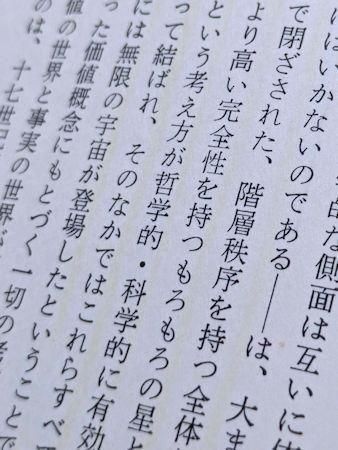 な側面は互いに
はいかないのである――は、大ま
で閉ざされた、階層秩序を持つ全体
より高い完全性を持つもろもろの星と
という考え方が哲学的・科学的に有効
って結ばれ、そのなかではこれらすべ
には無限の宇宙が登場したということで
った価値概念にもとづく一切の
値の世界と事実の世界が
のは、十七世紀